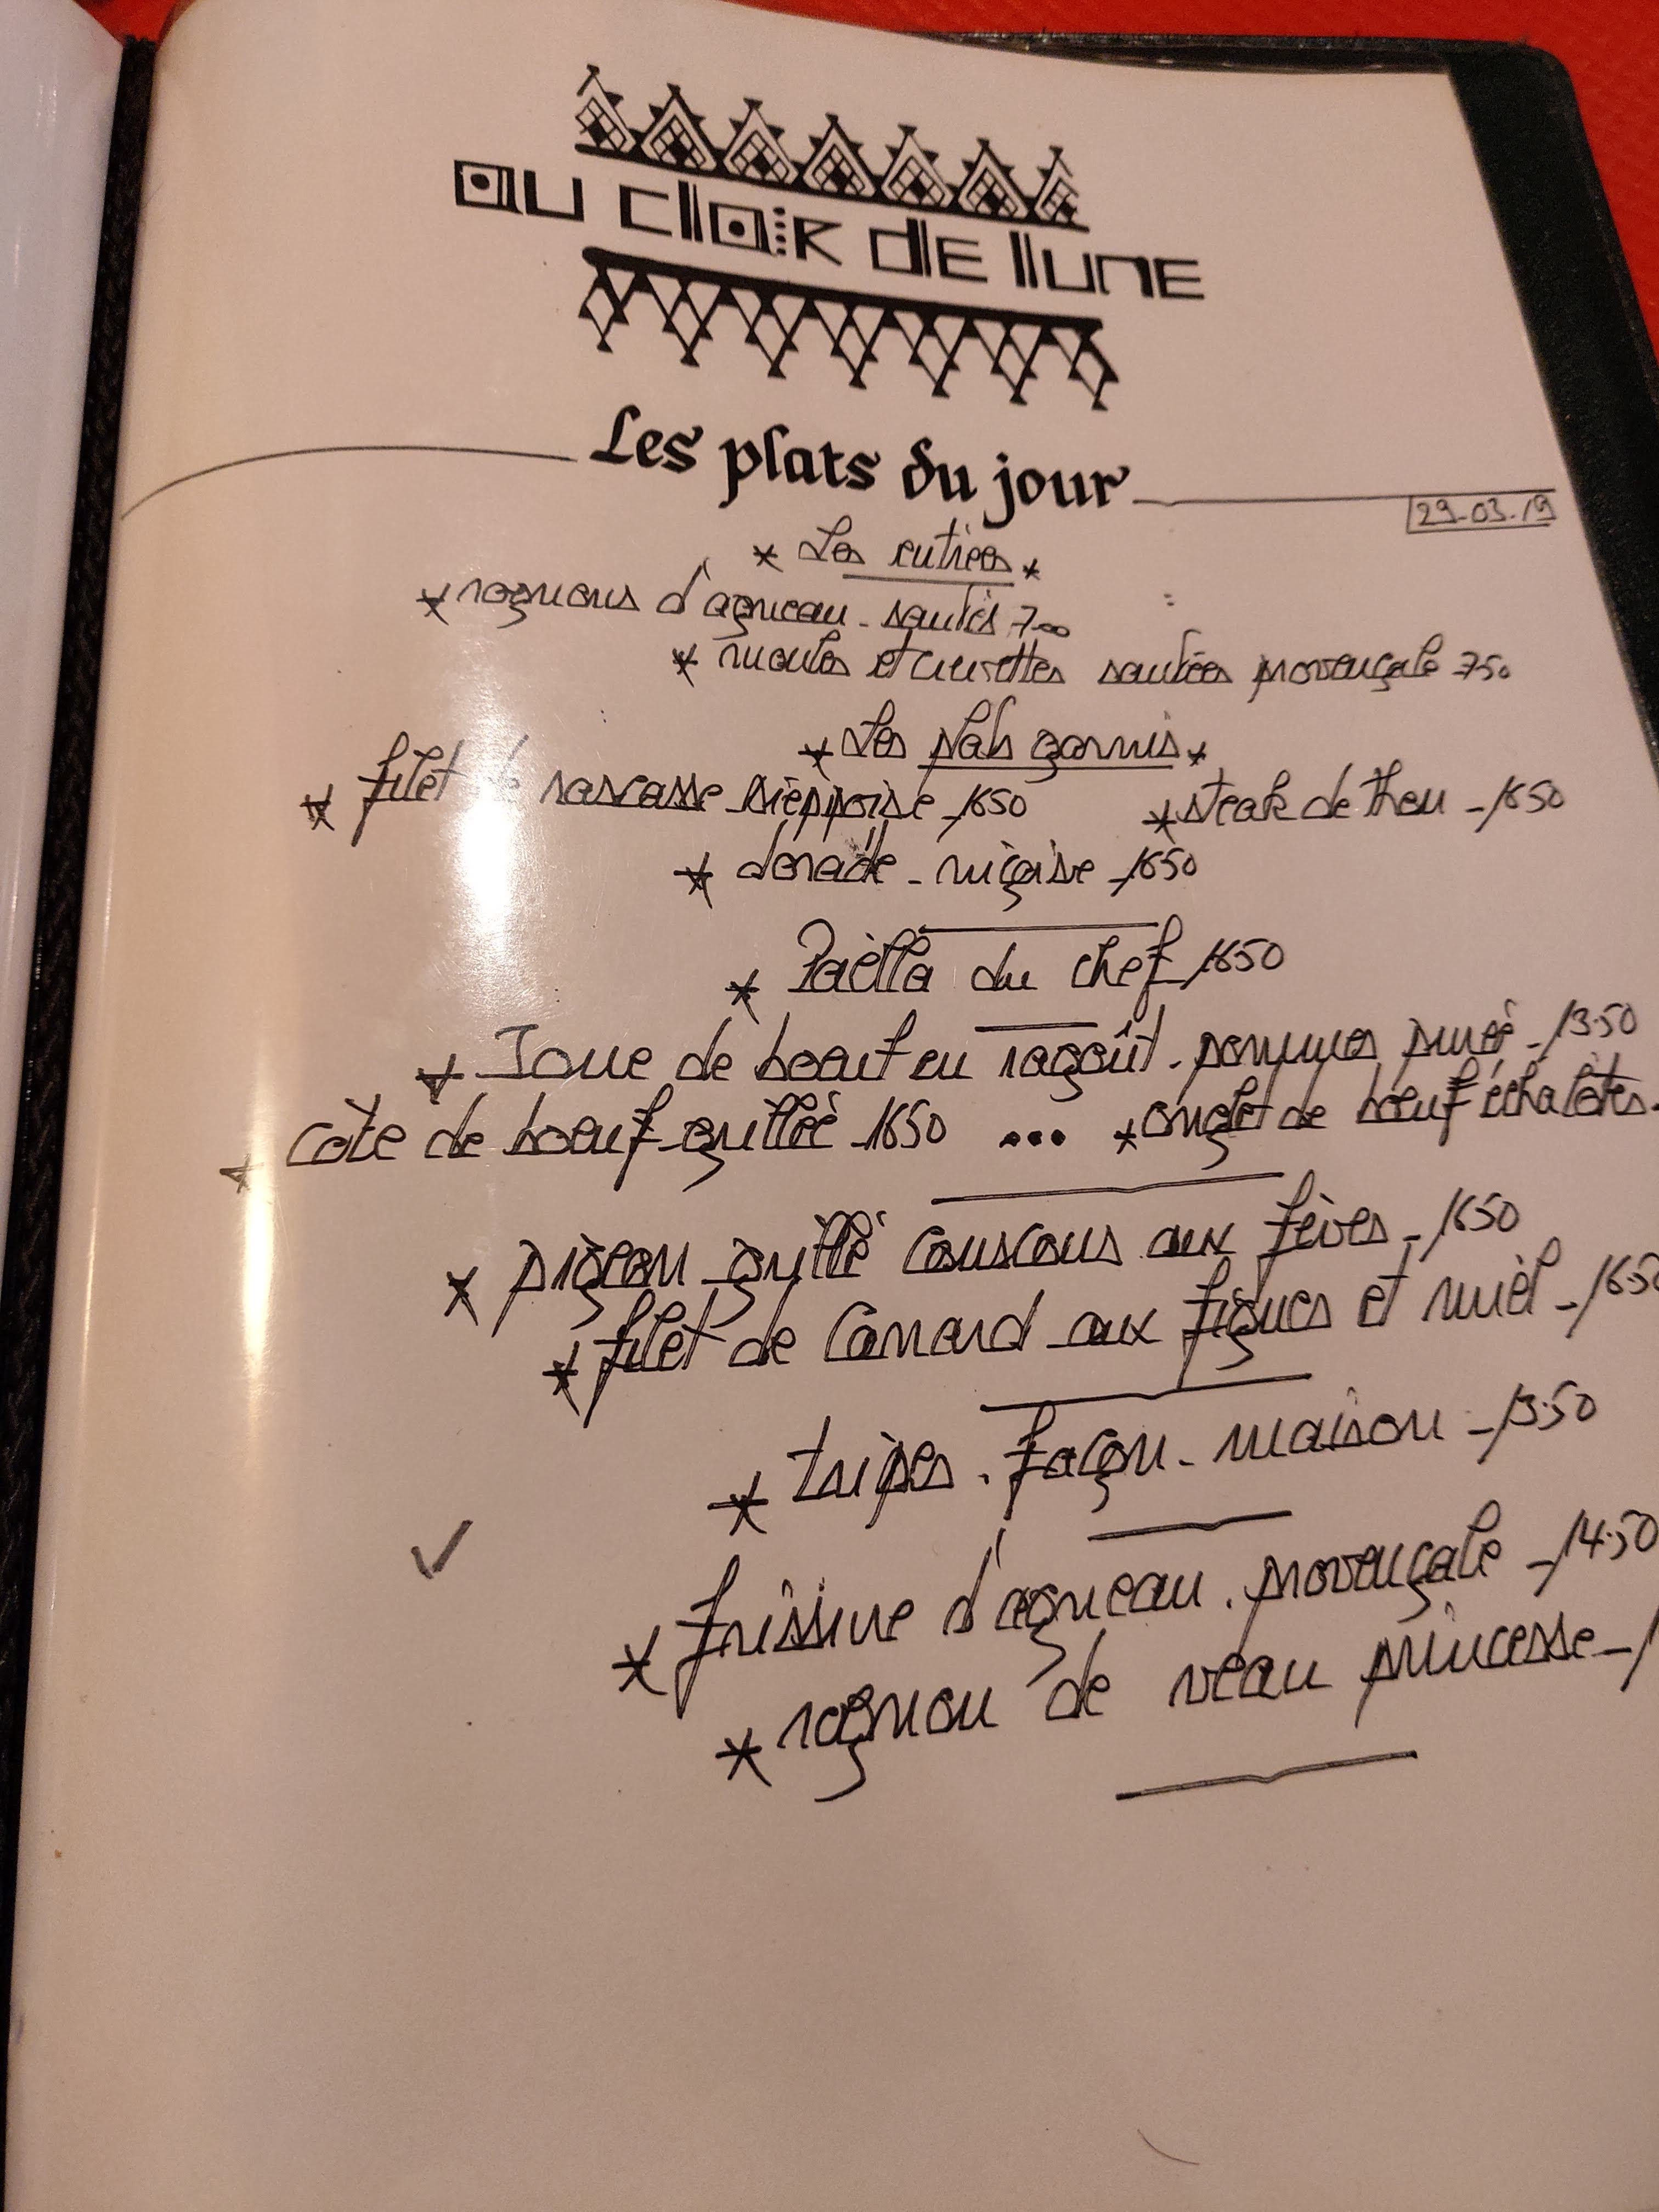 au clair de lune
Les plats du jour
29-03-19
* Les entrées *
* rognons d'agneau - sautés 7oo
* moules et crevettes sautées provençale 750
* Les plats garnis *
* filet de rascasse dieppoise - 1650 * steak de thon - 1650
* dorade - niçoise - 1650
* Paëlla du chef 1650
* Joue de boeuf en ragoût - pommes purée - 13.50
* côte de boeuf grillée - 1650 ... * onglet de boeuf échalotes -
* pigeon grillé couscous aux fèves - 1650
* filet de canard aux figues et mièl - 1650
* tripes - façon - maison - 13.50
* frissure d'agneau - provençale - 14.50
* rognon de veau princesse -